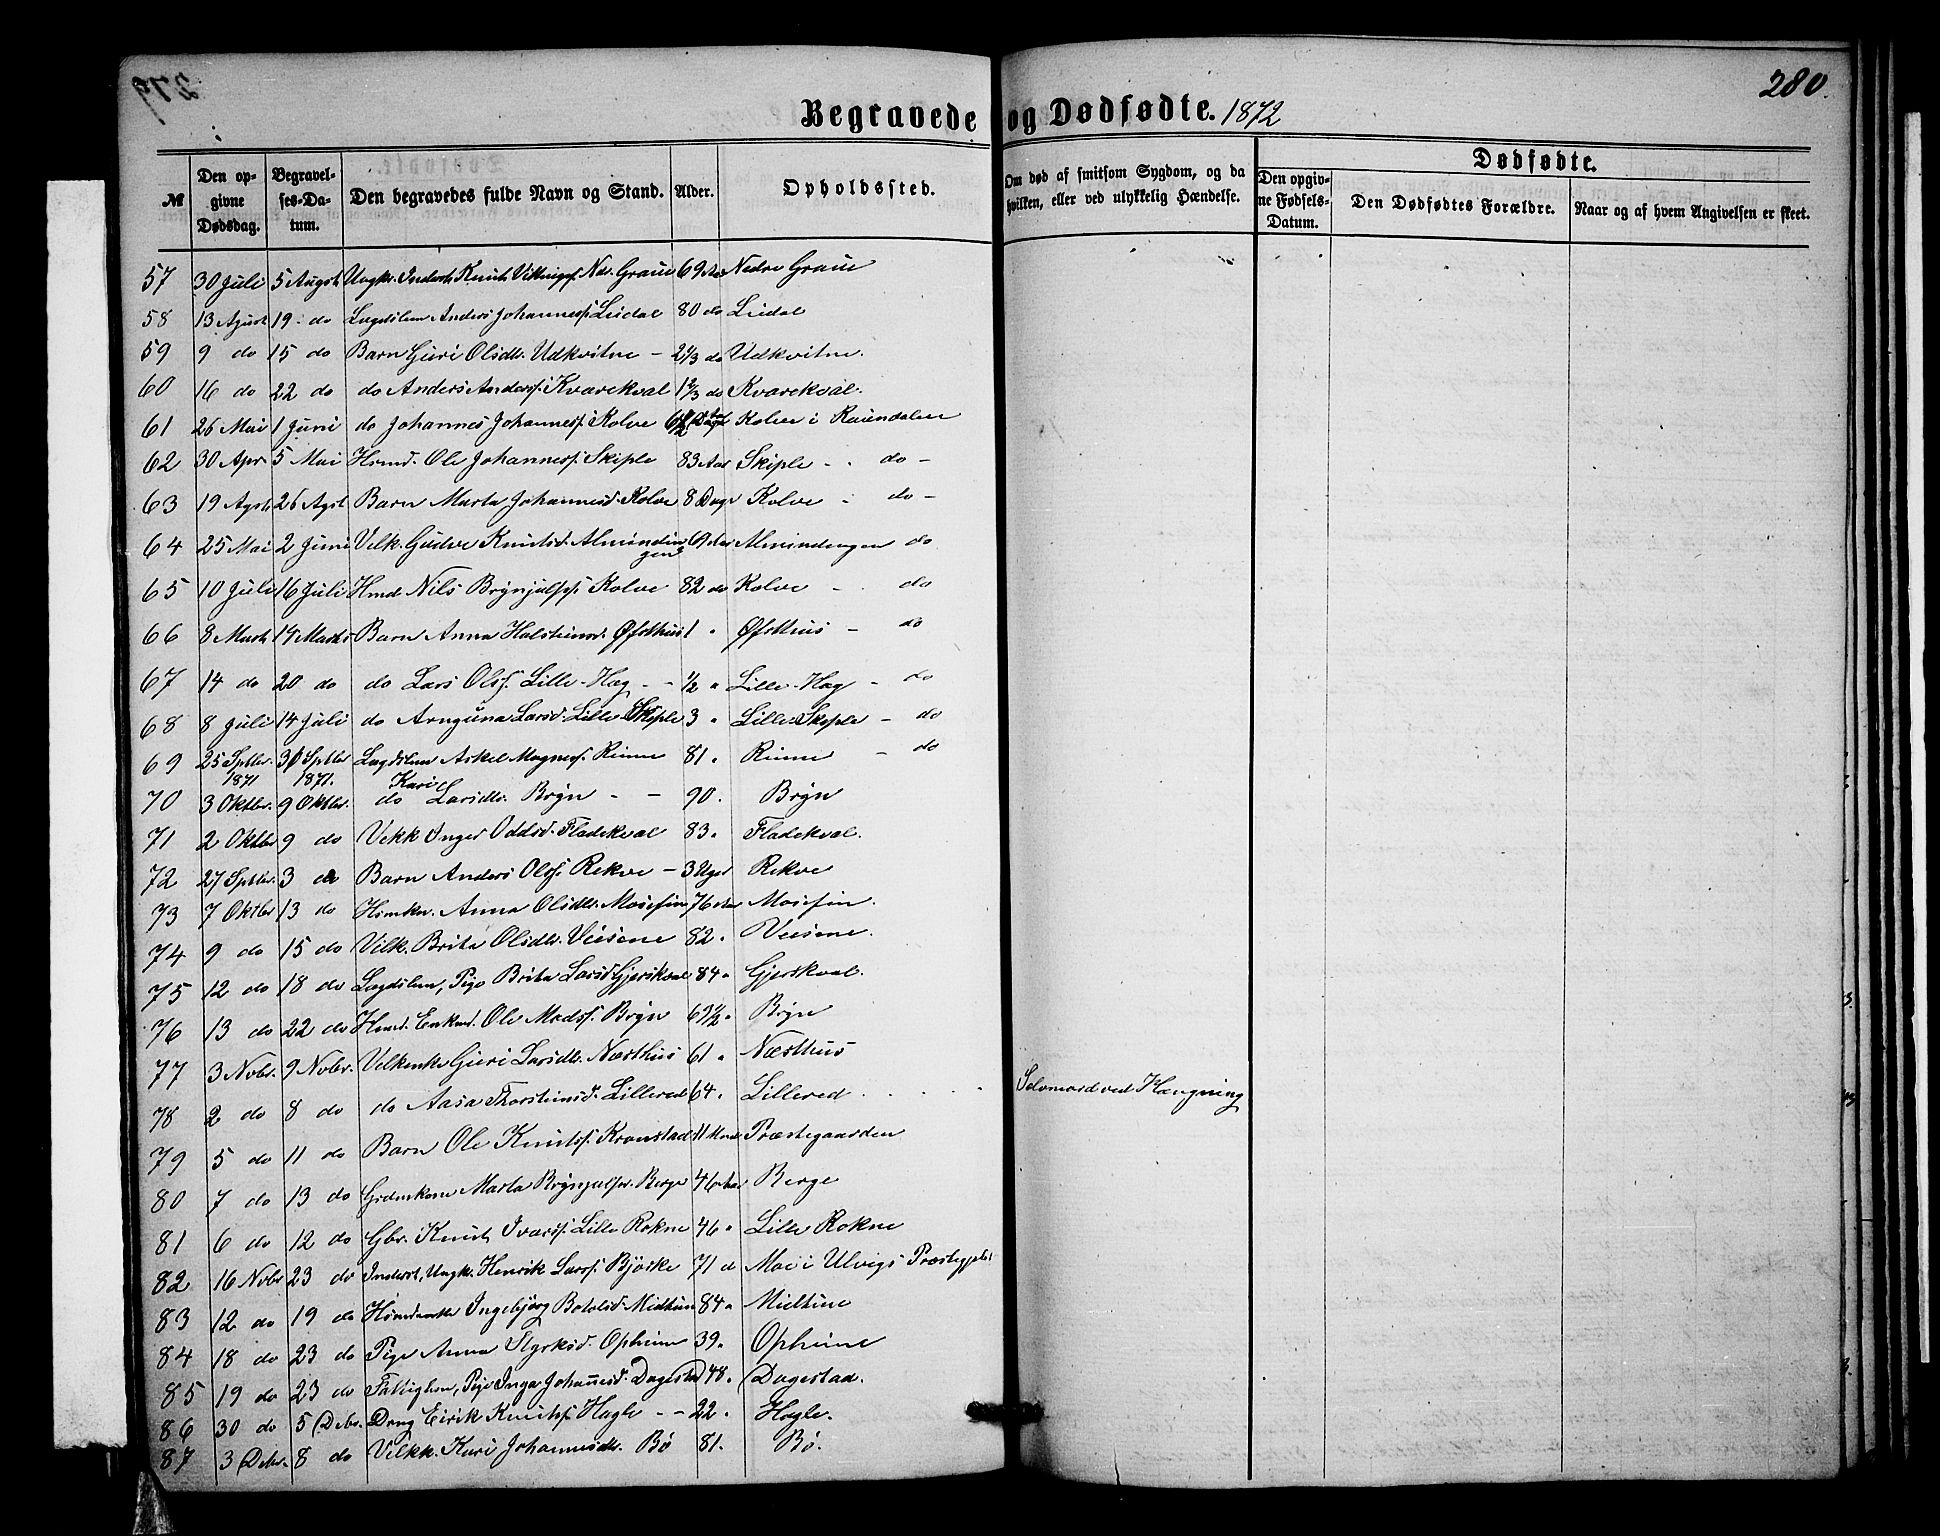 280.
Begravede og Dødfødte. 1872
№ Den opgivne Dødsdag. Begravelses-Datum. Den begravedes fulde Navn og Stand. Alder. Opholdssted. Om død af smitsom Sygdom, og da hvilken, eller ved ulykkelig Hændelse. Dødfødte. Den opgivne Fødsels-Datum. Den Dødfødtes Forældre. Naar og af hvem Angivelsen er skeet.
57 30 Juli 5 Augst Ungk. Inderst Knut Vikingss. Ndr. Graue 69 Aar Nedre Graue
58 13 Agust 19 do Lægdslem Anders Johanness. Lindal 80 do Lindal
59 9 do 15 do Barn Guri Olsdtr. Udkvitne - 2 1/3 do Udkvitne.
60 16 do 22 do do Anders Anderss. Kvarekval 1 2/3 do Kvarekval.
61 26 Mai 1 Juni do Johannes Johanness. Kolve 6 1/2 Kolve i Raundalen
62 30 Apr. 5 Mai Hsmd. Ole Johanness. Skiple 83 Aar Skiple - do -
63 19 Agst 26 Agst Barn Marta Johannesd. Kolve 8 Dage Kolve - do -
64 25 Mai 2 Juni Velk. Gudve Knutsd. Almindingen 69 Aar Almindingen do
65 10 Juli 16 Juli Hmd Nils Brynjulfss. Kolve 82 do Kolve - do
66 8 Marts 14 Marts Barn Anna Halsteinsd. Øfsthus 1 " Øfsthus - do
67 14 do 20 do do Lars Olss. Lille-Hæg - - 1/2 " Lille-Hæg - do
68 8 Juli 14 Juli do Arnguna Larsd. Lille Skiple 3 " Lille Skiple - do
69 25 Sptbr. 1871 30 Sptbr 1871. Lægdslem Askel Magness. Rinne 81 " Rinne - do
70 3 Oktbr. 9 Oktbr. do Kari Larsdtr. Bryn - - 90. Bryn
71 2 Oktbr 9 do Vekk Inger Oddsd. Fladekval 83. Fladekval.
72 27 Sptbr. 3 do Barn Anders Olss. Rekve - 3 Uger Rekve
73 7 Oktbr 13 do Hsmkn. Anna Olsdtr. Mosefin 76 Aar Mosefin.
74 9 do 15 do Velk. Brita Olsdtr. Veisene 82. Veisene.
75 12 do 18 do Lægdslem, Pige Brita Larsd Gjerskval 84 " Gjerskval.
76 13 do 22 do Hsmd. Enkmd. Ole Madss. Bryn 69 1/2 " Bryn
77 3 Nobr. 9 Nobr. Velkenke Guri Larsdtr. Næsthus 61 " Næsthus
78 2 do 8 do do Aasa Thorsteinsd. Lillered 64. Lillered . . . . Selvmord ved Hængning
79 5 do 11 do Barn Ole Knutss. Kronstad 11 Mnd Præstegaarden
80 7 do 13 do Grdmkone Marta Brynjulfsr. Berge 46 Aar Berge
81 6 do 12 do Gbr. Knut Ivarss. Lille Rokne 46 " Lille Rokne
82 16 Nobr 23 do Inderst, Ungk. Henrik Larss. Bjørke 71 d Moe i Ulvigs Præstegjeld
83 12 do 19 do Hsmdenke Ingebjørg Botolsd. Midtun 84 " Midtun
84 18 do 23 do Pige Anna Styrksd. Opheim 39. Opheim
85 19 do 23 do Fattiglem, Pige Inga Johannesd. Dagestad 48. Dagestad.
86 30 do 5 Debr. Dreng Eirik Knutss. Hagle - - 22. Hagle.
87 3 Debr. 8 do Velkk. Kari Johannesdtr. Bø 81. Bø.